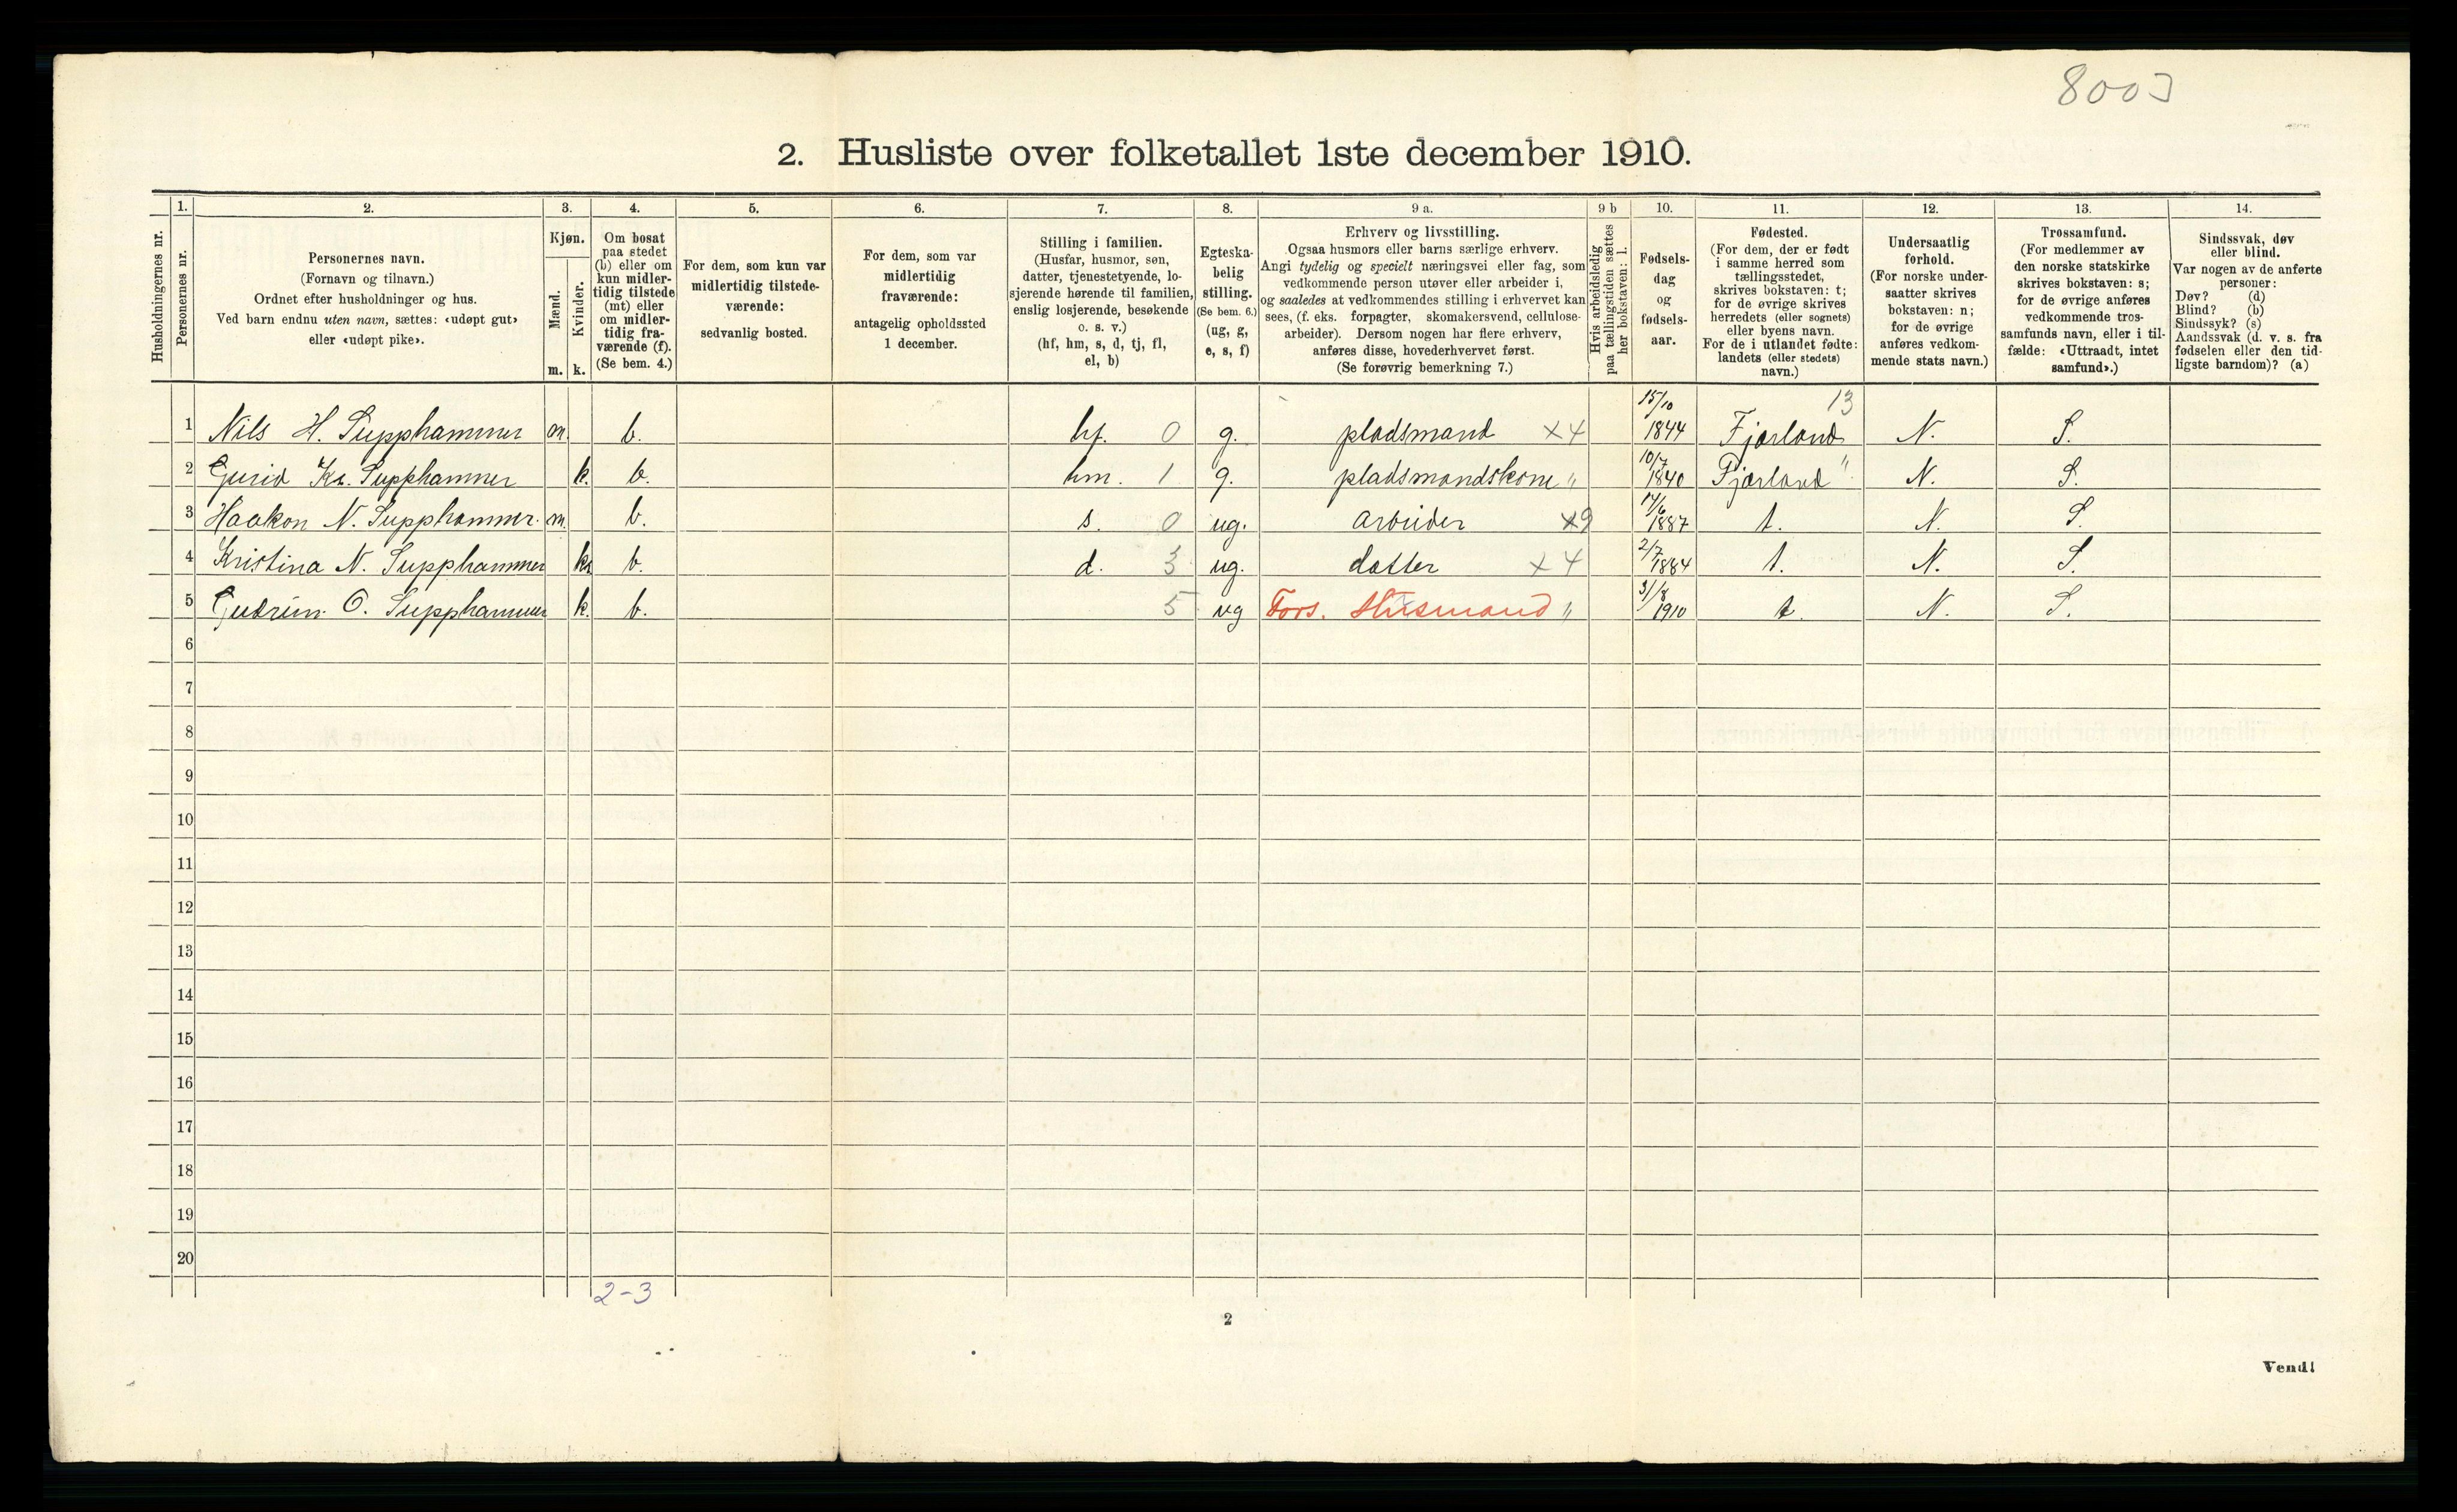 8003
2. Husliste over folketallet 1ste december 1910.
Husholdningernes nr.
1.
Personernes nr.
2.
Personernes navn.
(Fornavn og tilnavn.)
Ordnet efter husholdninger og hus.
Ved barn endnu uten navn, sættes: «udøpt gut»
eller «udøpt pike».
3.
Kjøn.
Mænd.
Kvinder.
m. k.
4.
Om bosat
paa stedet
(b) eller om
kun midler-
tidig tilstede
(mt) eller
om midler-
tidig fra-
værende (f).
(Se bem. 4.)
5.
For dem, som kun var
midlertidig tilstede-
værende:
sedvanlig bosted.
6.
For dem, som var
midlertidig
fraværende:
antagelig opholdssted
1 december.
7.
Stilling i familien.
(Husfar, husmor, søn,
datter, tjenestetyende, lo-
sjerende hørende til familien,
enslig losjerende, besøkende
o. s. v.)
(hf, hm, s, d, tj, fl,
el, b)
8.
Egteska-
belig
stilling.
(Se bem. 6.)
(ug, g,
e, s, f)
9 a.
Erhverv og livsstilling.
Ogsaa husmors eller barns særlige erhverv.
Angi tydelig og specielt næringsvei eller fag, som
vedkommende person utøver eller arbeider i,
og saaledes at vedkommendes stilling i erhvervet kan
sees, (f. eks. forpagter, skomakersvend, cellulose-
arbeider). Dersom nogen har flere erhverv,
anføres disse, hovederhvervet først.
(Se forøvrig bemerkning 7.)
9 b
Hvis arbeidsledig
paa tællingstiden sættes
her bokstaven: l.
10.
Fødsels-
dag
og
fødsels-
aar.
11.
Fødested.
(For dem, der er født
i samme herred som
tællingsstedet,
skrives bokstaven: t;
for de øvrige skrives
herredets (eller sognets)
eller byens navn.
For de i utlandet fødte:
landets (eller stedets)
navn.)
12.
Undersaatlig
forhold.
(For norske under-
saatter skrives
bokstaven: n;
for de øvrige
anføres vedkom-
mende stats navn.)
13.
Trossamfund.
(For medlemmer av
den norske statskirke
skrives bokstaven: s;
for de øvrige anføres
vedkommende tros-
samfunds navn, eller i til-
fælde: «Uttraadt, intet
samfund».)
14.
Sindssvak, døv
eller blind.
Var nogen av de anførte
personer:
Døv? (d)
Blind? (b)
Sindssyk? (s)
Aandssvak (d. v. s. fra
fødselen eller den tid-
ligste barndom)? (a)
1 Nils H. Supphammer m. b. hf. 0 g. pladsmand x4 15/10 1844 Fjærland 13 N. S.
2 Gurid Kr. Supphammer k. b. hm. 1 g. pladsmandskone " 10/7 1840 Fjærland " N. S.
3 Haakon N. Supphammer. m. b. s. 0 ug. arbeider x9 14/6 1887 t. N. S.
4 Kristina N. Supphammer k. b. d. 3 ug. datter x4 2/7 1884 t. N. S.
5 Gudrun O. Supphammer k. b. 5 ug Fors. Husmand " 31/8 1910 t. N. S.
6
7
8
9
10
11
12
13
14
15
16
17
18
19
20
2-3
2
Vend!